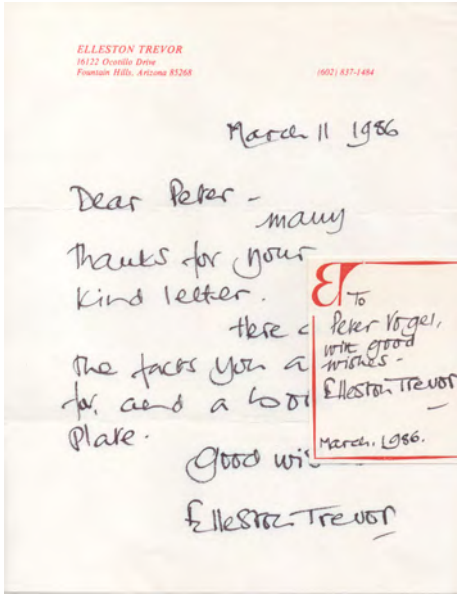 ELLESTON TREVOR
16122 Ocotillo Drive
Fountain Hills, Arizona 85268
(602) 837-1484
March 11 1986
Dear Peter -
many
thanks for your
kind letter.
Here
the facts you a
for, and a boo
plate.
Good wis
Elleston Trevor
ET
To
Peter Vogel,
with good
wishes -
Elleston Trevor
March. 1986.